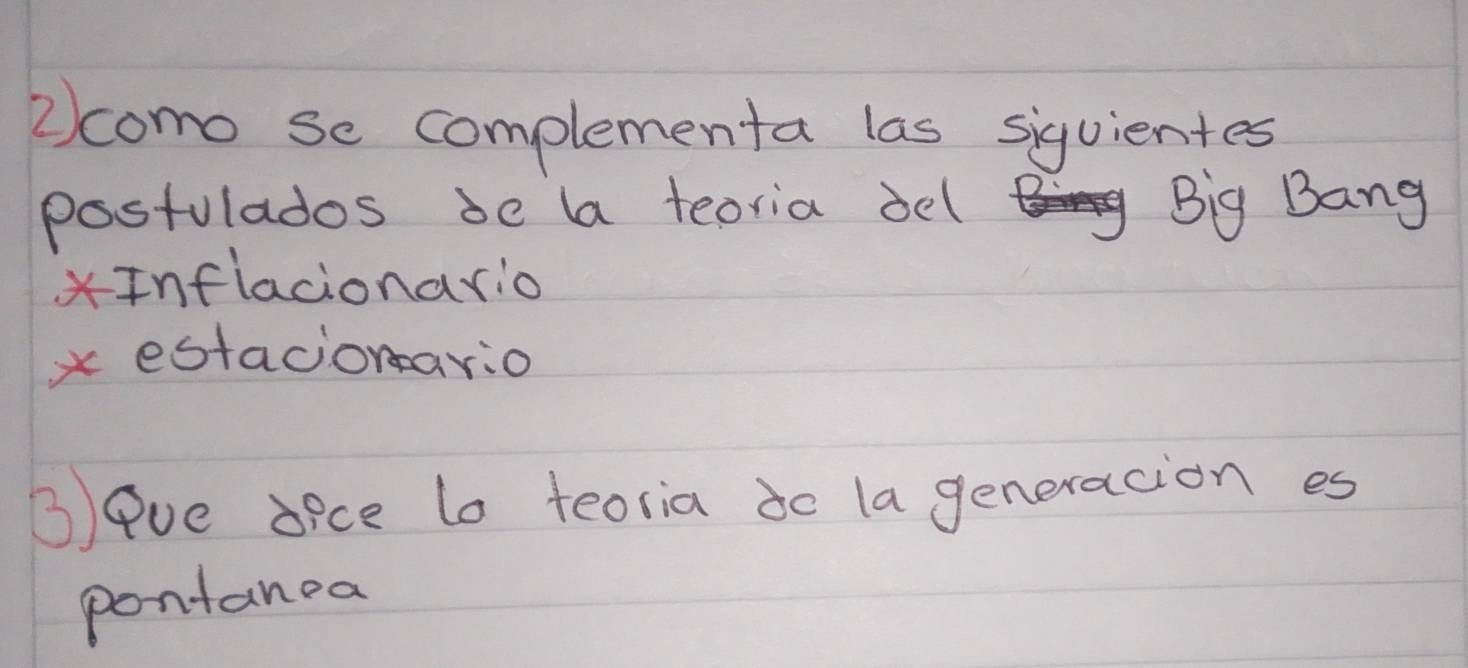 2) como se complementa las siguientes
postulados de la teoria del Big Bang
* Inflacionario
* estacionario
3) Que dice la teoria de la generacion es
pontanea